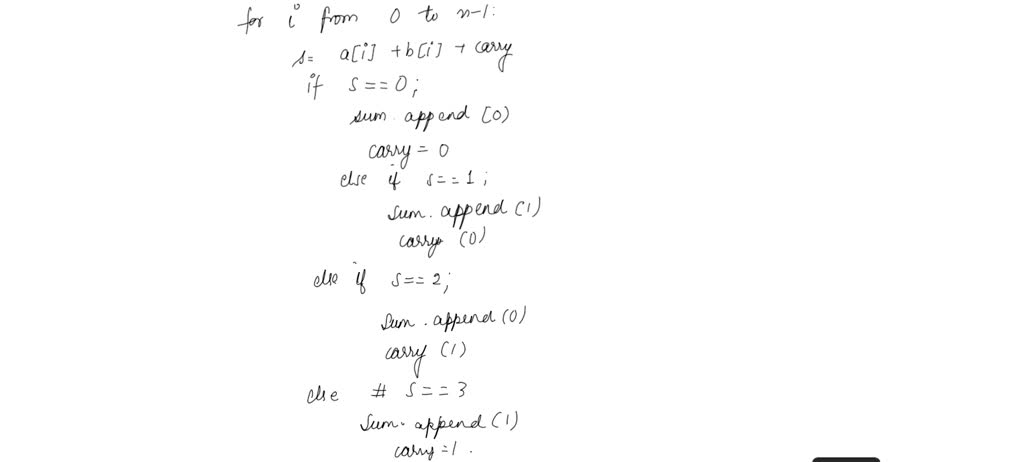 for i from 0 to n-1:
s= a[i] +b[i] + carry
if s==0;
sum. append [0)
carry= 0
else if s==1;
sum. append (1)
carry (0)
else if s==2;
sum. append (0)
carry (1)
else # s==3
sum. append (1)
carry=1.